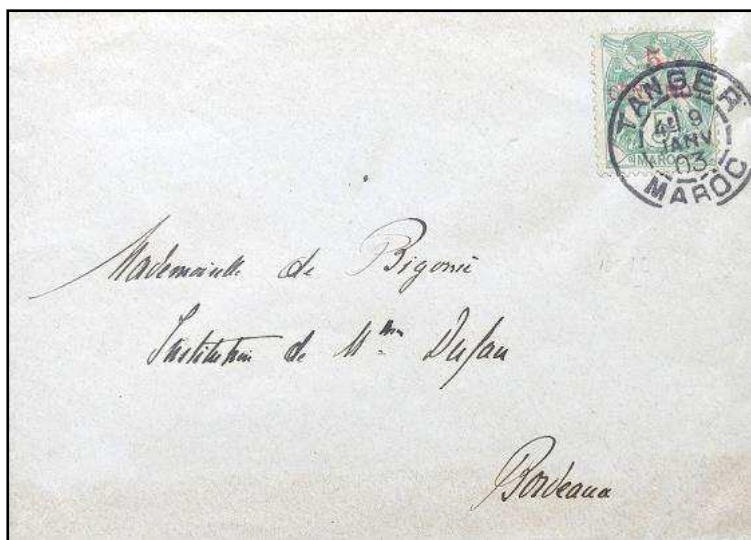 5
5
MAROC
TANGER
4E 9
JANV
03
MAROC
Mademoiselle de Bigorie
Institution de Mme Dufau
Bordeaux